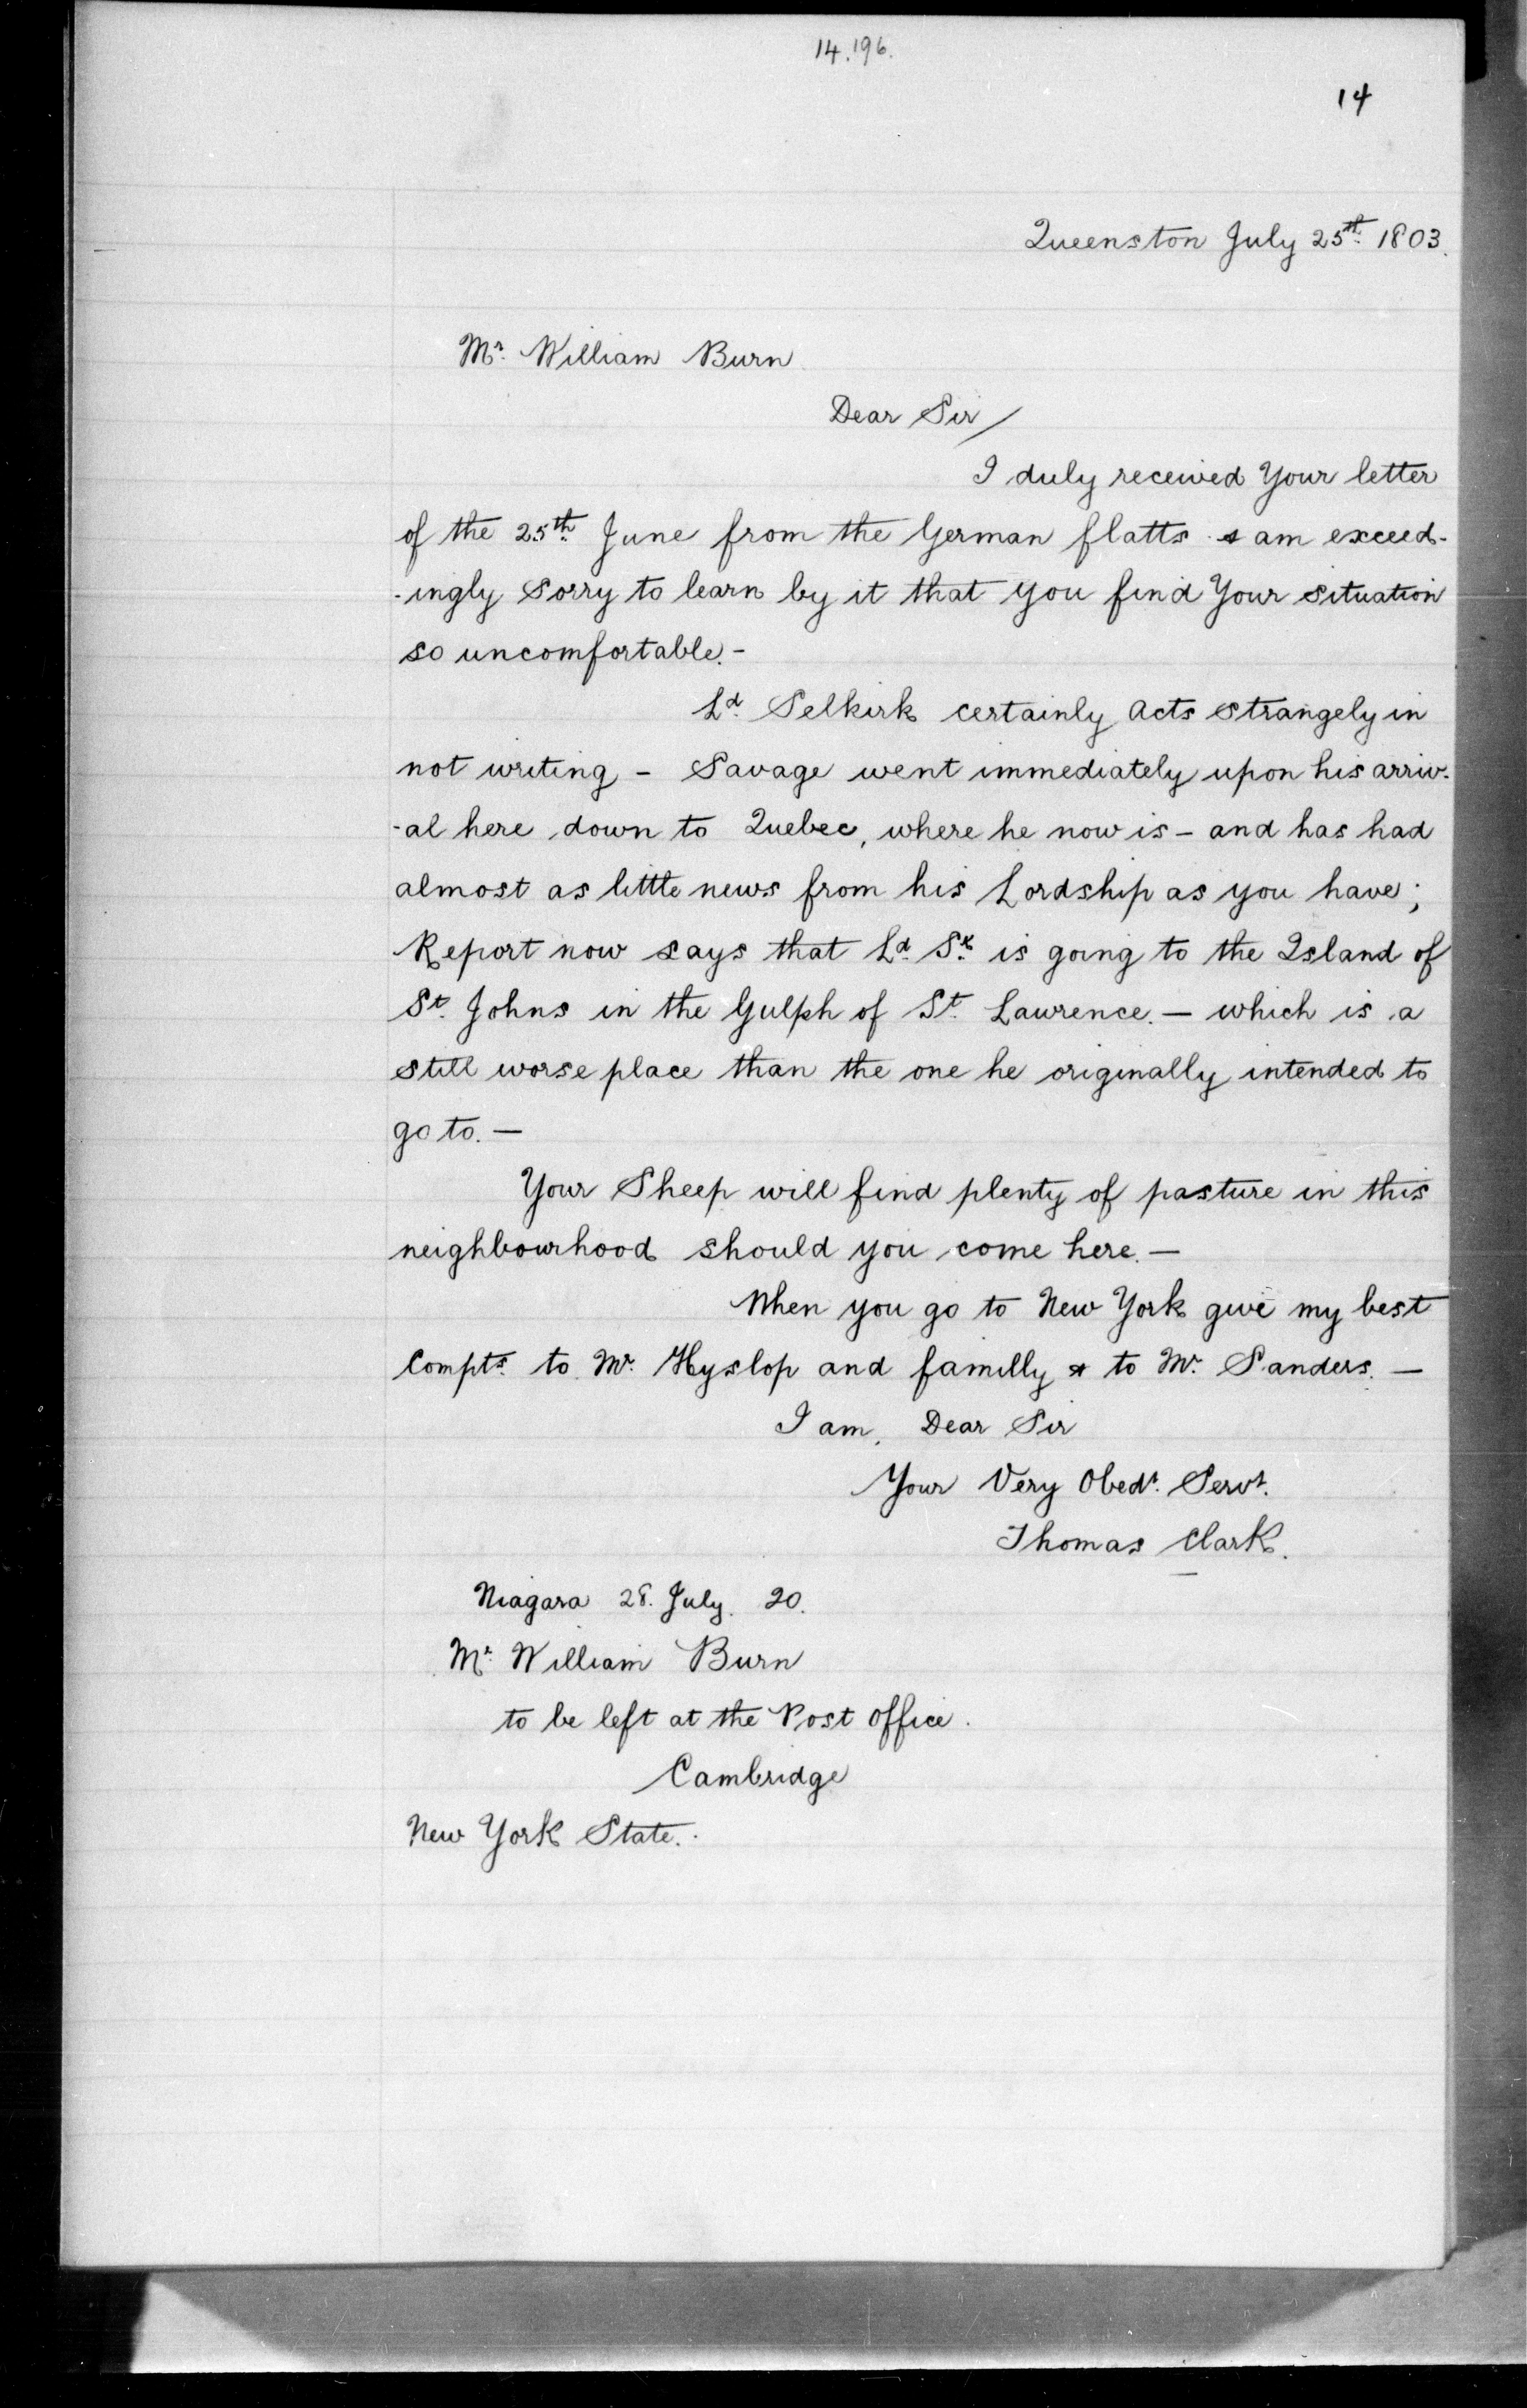 14.196.
14
Queenston July 25th. 1803.
Mr. William Burn
Dear Sir/
I duly received Your letter
of the 25th. June from the German flatts & am exceed-
-ingly Sorry to learn by it that you find Your situation
so uncomfortable.-
Ld. Selkirk certainly Acts strangely in
not writing - Savage went immediately upon his arriv-
-al here down to Quebec, where he now is - and has had
almost as little news from his Lordship as you have;
Report now says that Ld. Sk. is going to the Island of
St. Johns in the Gulph of St. Lawrence. — which is a
still worse place than the one he originally intended to
go to. —
Your Sheep will find plenty of pasture in this
neighbourhood should you come here. —
When you go to New York give my best
Compts. to Mr. Hyslop and familly & to Mr. Sanders. —
I am, Dear Sir
Your Very Obedt. Servt.
Thomas Clark.
Niagara 28. July. 20.
Mr. William Burn
to be left at the Post Office.
Cambridge
New York State.